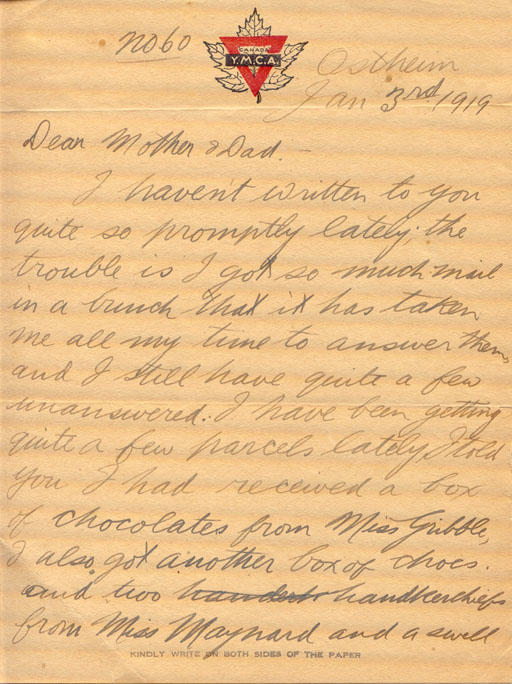 no 60
CANADA
Y.M.C.A.
Ostheim
Jan 3rd 1919
Dear Mother & Dad. -
I haven't written to you
quite so promptly lately; the
trouble is I got so much mail
in a bunch that it has taken
me all my time to answer them,
and I still have quite a few
unanswered. I have been getting
quite a few parcels lately, I told
you I had received a box
of chocolates from Miss Gribble,
I also got another box of chocs.
and two handkerchiefs
from Miss Maynard and a swell
KINDLY WRITE ON BOTH SIDES OF THE PAPER